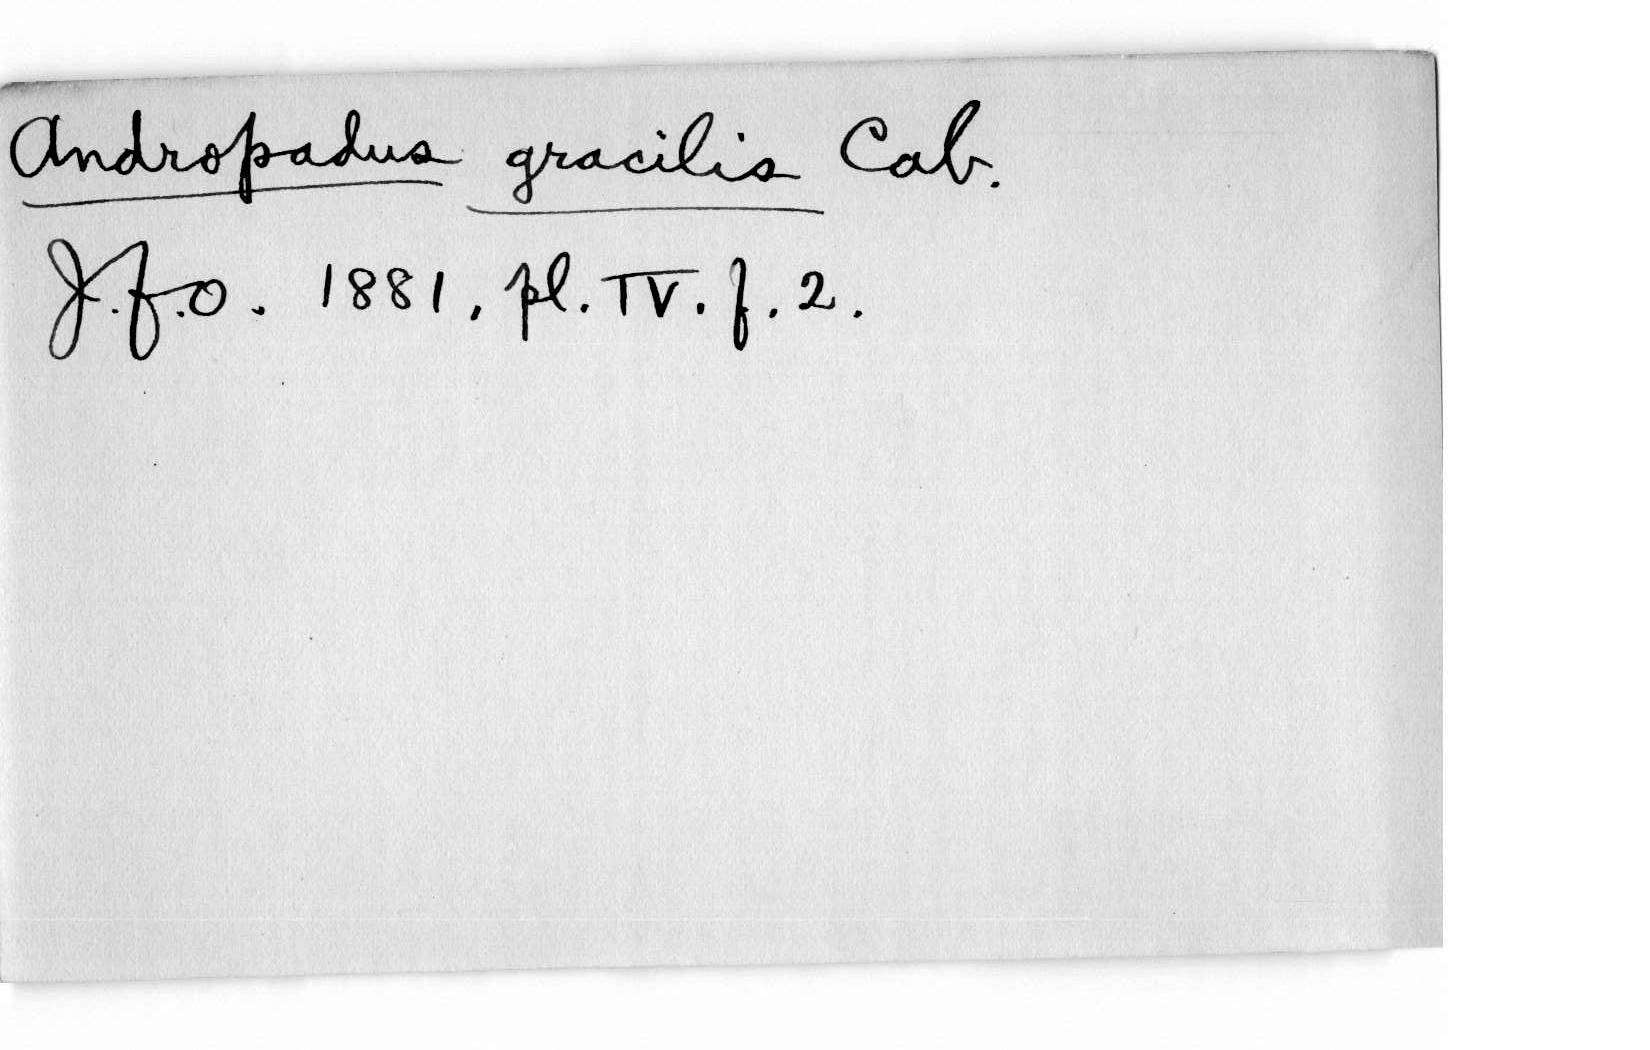 Andropadus gracilis Cab.
J.f.O. 1881, pl. IV. f. 2.